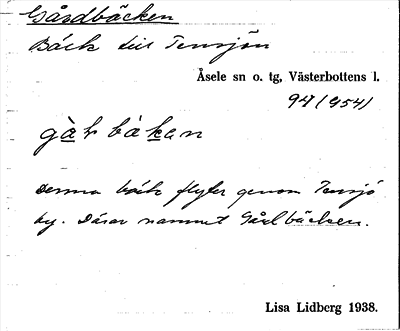 Gårdbäcken
Bäck till Tensjön
Åsele sn o. tg, Västerbottens l.
94/(954)
gàḷbäkan
Denna bäck flyter genom Tensjö
by. Därav namnet Gårdbäcken.
Lisa Lidberg 1938.